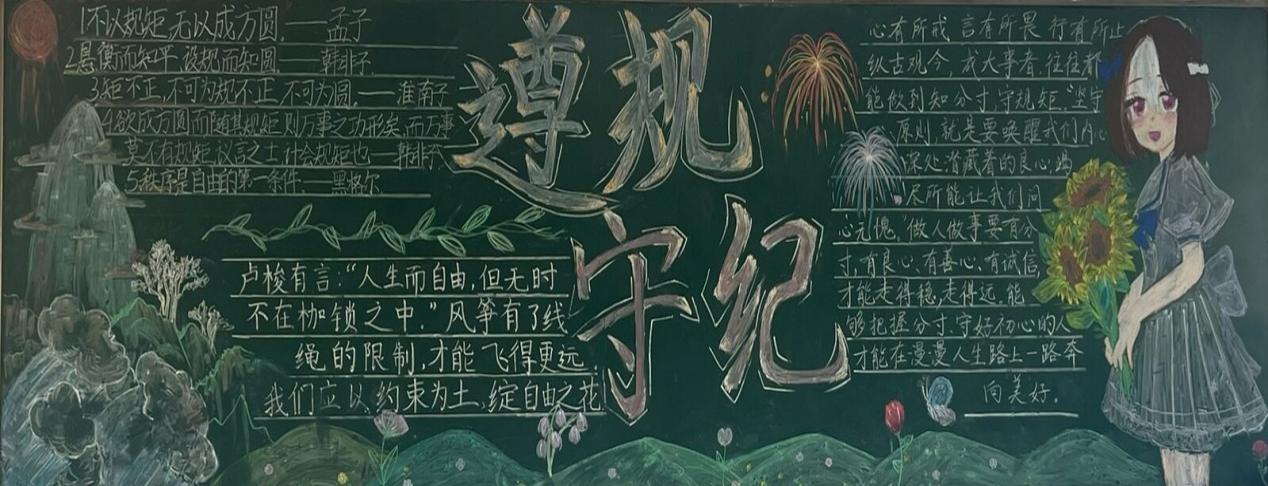 1不以规矩,无以成方圆。——孟子
2悬衡而知平,设规而知圆——韩非子.
3矩不正,不可为规不正,不可为圆。——淮南子
4欲成方圆而随其规矩,则万事之功形矣,而万事
莫不有规矩,议言之士,计会规矩也——韩非子
5.秩序是自由的第一条件.——黑格尔.
卢梭有言:“人生而自由,但无时
不在枷锁之中.”风筝有了线
绳的限制,才能飞得更远.
我们应以约束为土,绽自由之花
遵规
守纪
心有所戒 言有所畏 行有所止
纵古观今,成大事者,往往都
能做到知分寸,守规矩.“坚守
原则,就是要唤醒我们内心
深处潜藏着的良心,竭
尽所能让我们问
心无愧.”做人做事要有分
寸,有良心、有善心、有诚信,
才能走得稳,走得远,能
够把握分寸,守好初心的人
才能在漫漫人生路上一路奔
向美好.